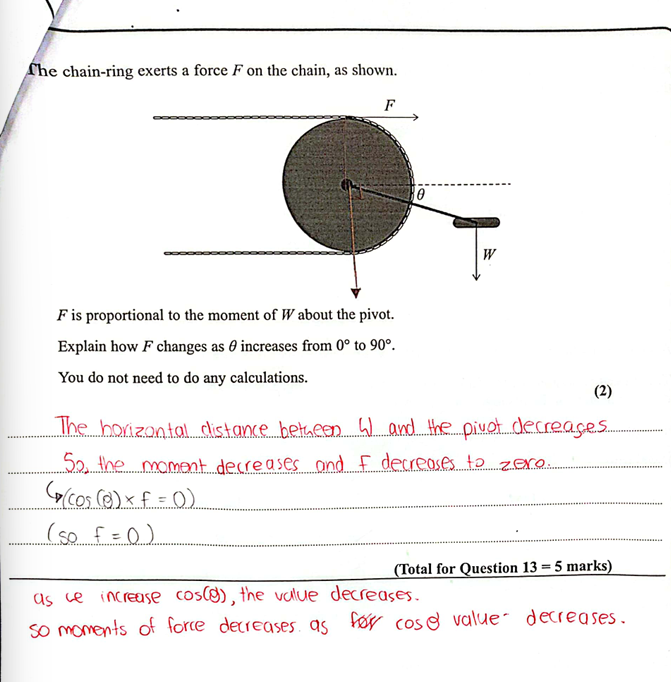 The chain-ring exerts a force F on the chain, as shown.
F
θ
W
F is proportional to the moment of W about the pivot.
Explain how F changes as θ increases from 0° to 90°.
You do not need to do any calculations.
(2)
The horizontal distance between W and the pivot decreases
So, the moment decreases and F decreases to zero.
↳(cos(θ) × f = 0)
(so f = 0)
(Total for Question 13 = 5 marks)
as we increase cos(θ), the value decreases.
so moments of force decreases as cos θ value decreases.